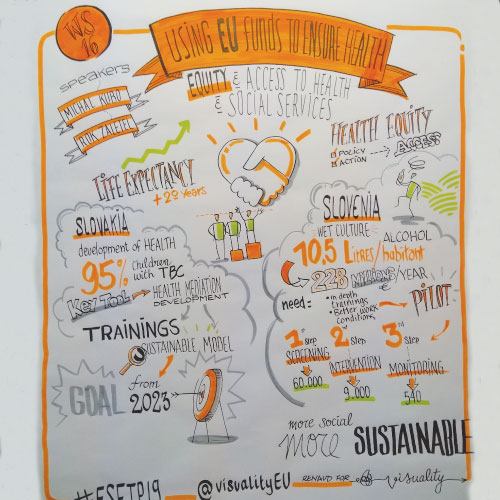 WS 16
USING EU FUNDS TO ENSURE HEALTH
EQUITY & ACCESS TO HEALTH
& SOCIAL SERVICES
speakers
MICHAL KUBO
LIFE EXPECTANCY
+20 years
HEALTH EQUITY
POLICY
ACTION
ACCESS
SLOVAKIA
development of HEALTH
95% children
with TBC
Key Tool
HEALTH MEDIATION
DEVELOPMENT
TRAININGS
SUSTAINABLE MODEL
GOAL
from
2023
SLOVENIA
WET CULTURE
10,5 Litres/habitant
ALCOHOL
228 MILLIONS/YEAR
need:
in depth
trainings
Better work
conditions
PILOT
1st Step
SCREENING
60.000
2d Step
INTERVENTION
9.000
3rd Step
MONITORING
540
more social
more SUSTAINABLE
#ESFTP19
@visualityEU
RENAUD FOR
visuality